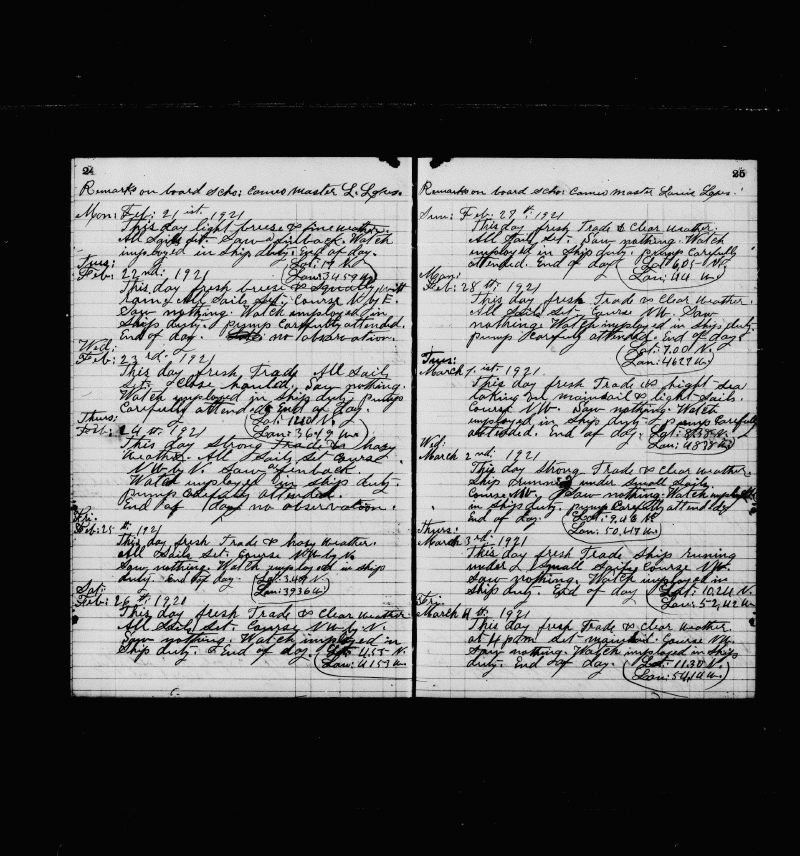 24
Remarks on board Scho: Cameo master L. Lopes.
Mon: Feb: 21 ist. 1921
This day light breeze & fine weather.
All Sails set. Saw a finback. Watch
imployed in ship duty. End of day.
Tues: Lat: N.
Feb: 22nd: 1921 Lon: 3459 W.
This day fresh breeze & Squally with
rain & All Sails Set: Course N by E.
Saw nothing. Watch employed in
Ships duty. pump Carefully attended.
End of day. no observation.
Wed:
Feb: 23 rd. 1921
This day fresh Trade All Sails
Set. & Close hauled. Saw nothing.
Watch employed in Ships duty pump
Carefully attended End of day.
Thurs: Lat: N.
Feb: 24 th. 1921 Lon: 3649 W.
This day strong Trade & hazy
weather. All Sails Set Course
NW by N. Saw a finback.
Watch imployed in ship duty.
pump carefully attended.
End of day no observation.
Fri.
Feb: 25 th. 1921
This day fresh Trade & hazy weather.
All Sails Set. Course NW by N.
Saw nothing. Watch employed in ships
duty. End of day. Lat: 3.49 N.
Sat: Lon: 3936 W.
Feb: 26 th. 1921
This day fresh Trade & Clear weather.
All Sails Set. Course NW by N.
Saw nothing. Watch imployed in
Ship duty. End of day. Lat: 4.55 N.
Lon: 4157 W.
25
Remarks on board Scho: Cameo master Louis Lopes.
Sun: Feb: 27 th. 1921
This day fresh Trade & Clear weather.
All Sails Set. Saw nothing. Watch
employed in Ship duty. pump Carefully
attended. End of day Lat: 6.05 N.
Mon: Lon: 44 W.
Feb: 28 th: 1921
This day fresh Trade & Clear weather.
All Sails Set. Course NW. Saw
nothing. Watch imployed in Ships duty.
pump Carefully attended. End of day
Lat: 7.00 N.
Tues: Lon: 4627 W.
March 1 ist. 1921.
This day fresh Trade & hight sea
taking in mainsail & light Sails.
Course NW. Saw nothing. Watch
employed in Ship duty & pump Carefully
attended. End of day. Lat: N.
Wed: Lon: W.
March 2 nd: 1921
This day strong Trade & Clear weather.
Ship running under Small Sails.
Course NW. Saw nothing. Watch employed
in Ships duty. pump Carefully attended
End of day. Lat: 9,43 N.
Thurs: Lon: 50,47 W.
March 3rd: 1921
This day fresh Trade Ship runing
under Small Sails, Course NW.
Saw nothing. Watch imployed in
Ship duty. End of day Lat: 10.24 N.
Fri: Lon: 52,42 W.
March 4 th: 1921
This day fresh Trade & Clear weather
at 4 pdm. Set mainsail. Course NW.
Saw nothing. Watch imployed in Ships
duty. End of day. Lat: 11.30 N.
Lon: 5414 W.